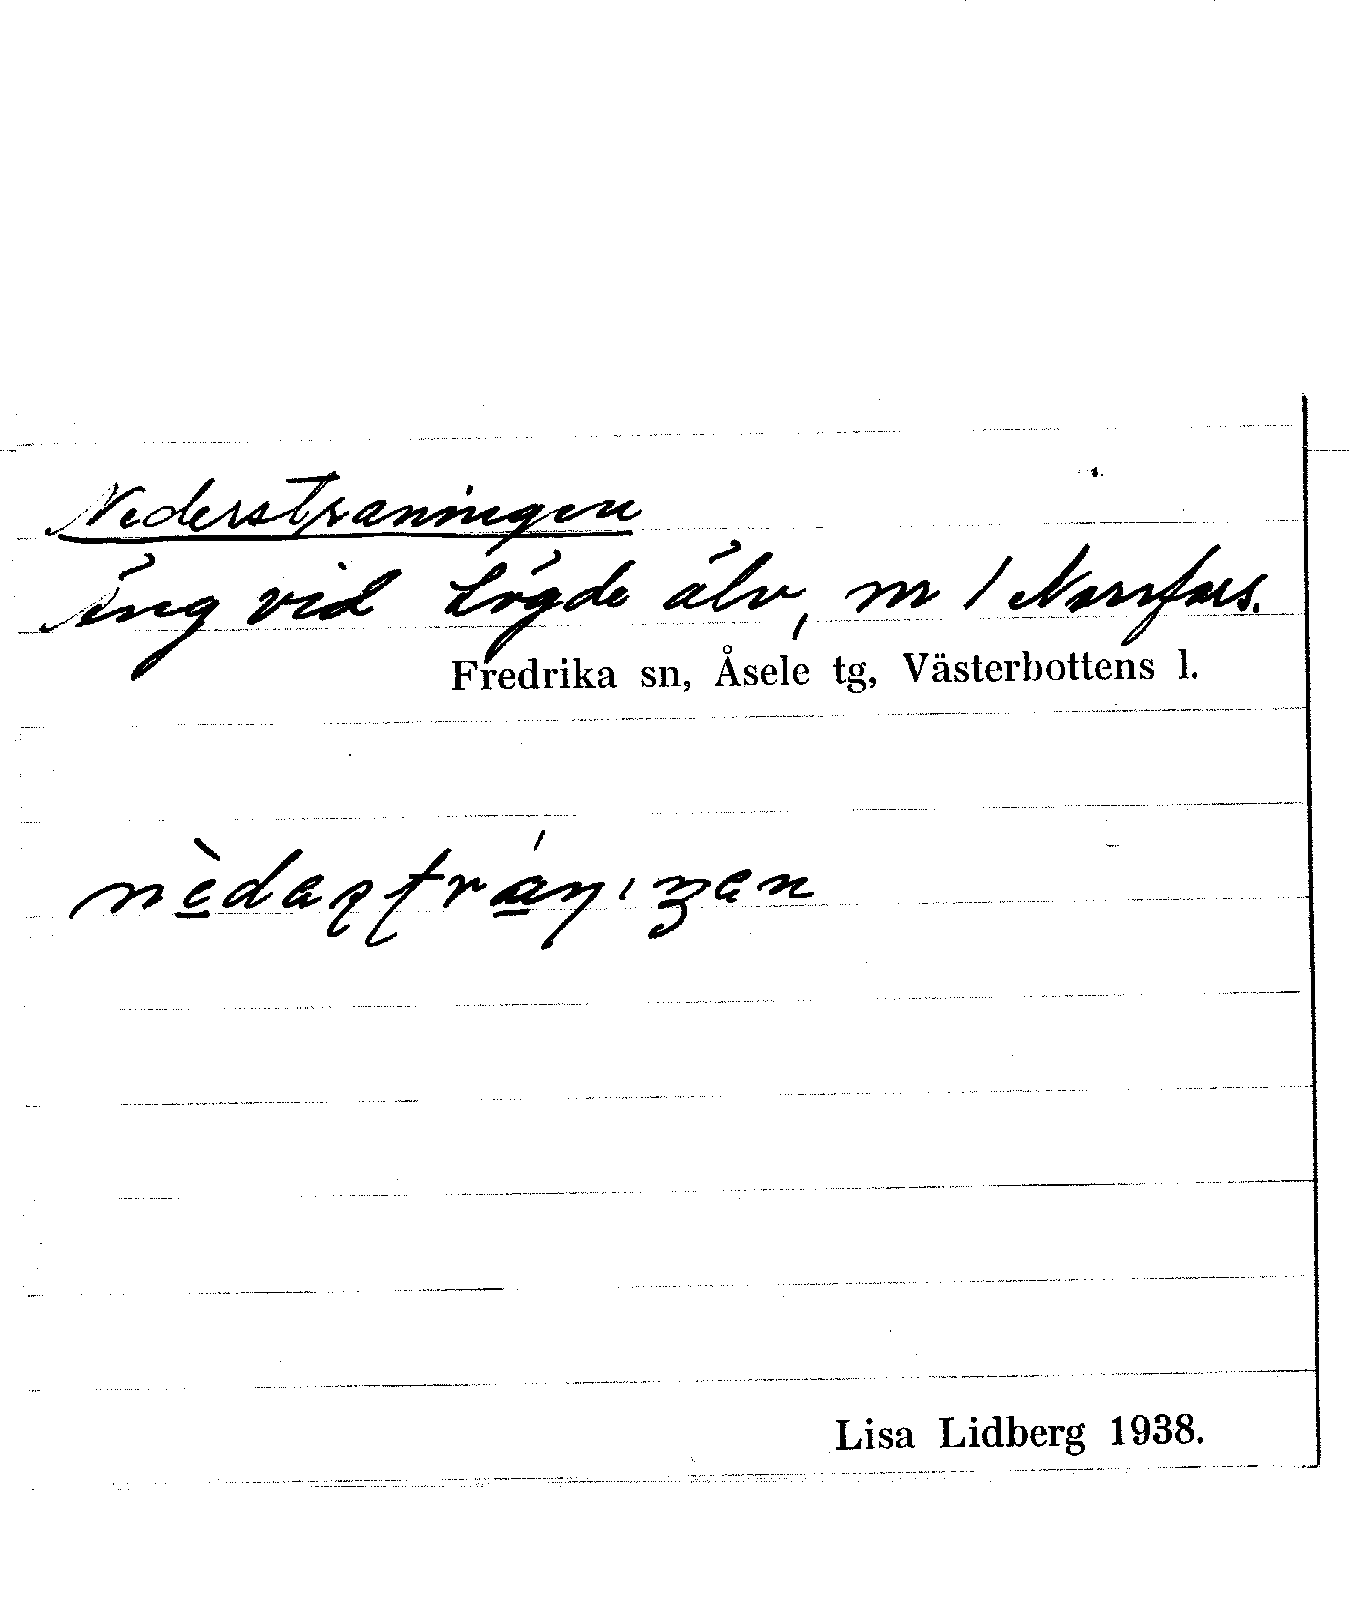 Nederstraningen
Äng vid Lögde älv, nr 1 Norrfors.
Fredrika sn, Åsele tg, Västerbottens l.
Lisa Lidberg 1938.